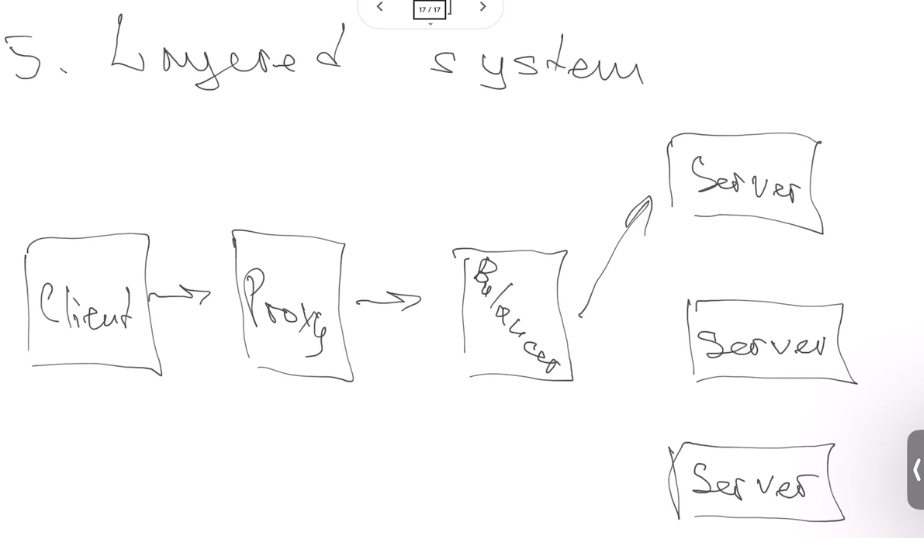 17/17
5. Layered system
Client
Proxy
Balancer
Server
Server
Server